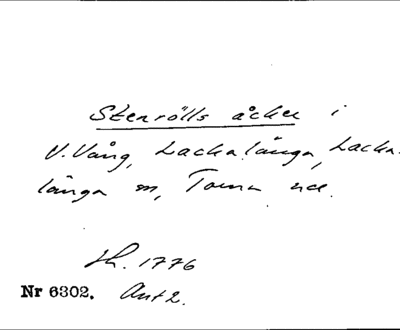 Stenrölls åcker i
V. Vång, Lackalänga, Lacka-
länga sn, Torna hd.
Sk. 1776
Nr 6302. Ant 2.